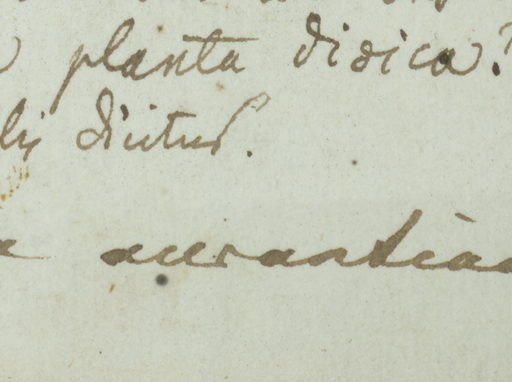 planta dioica?
dicitur.
aurantiac